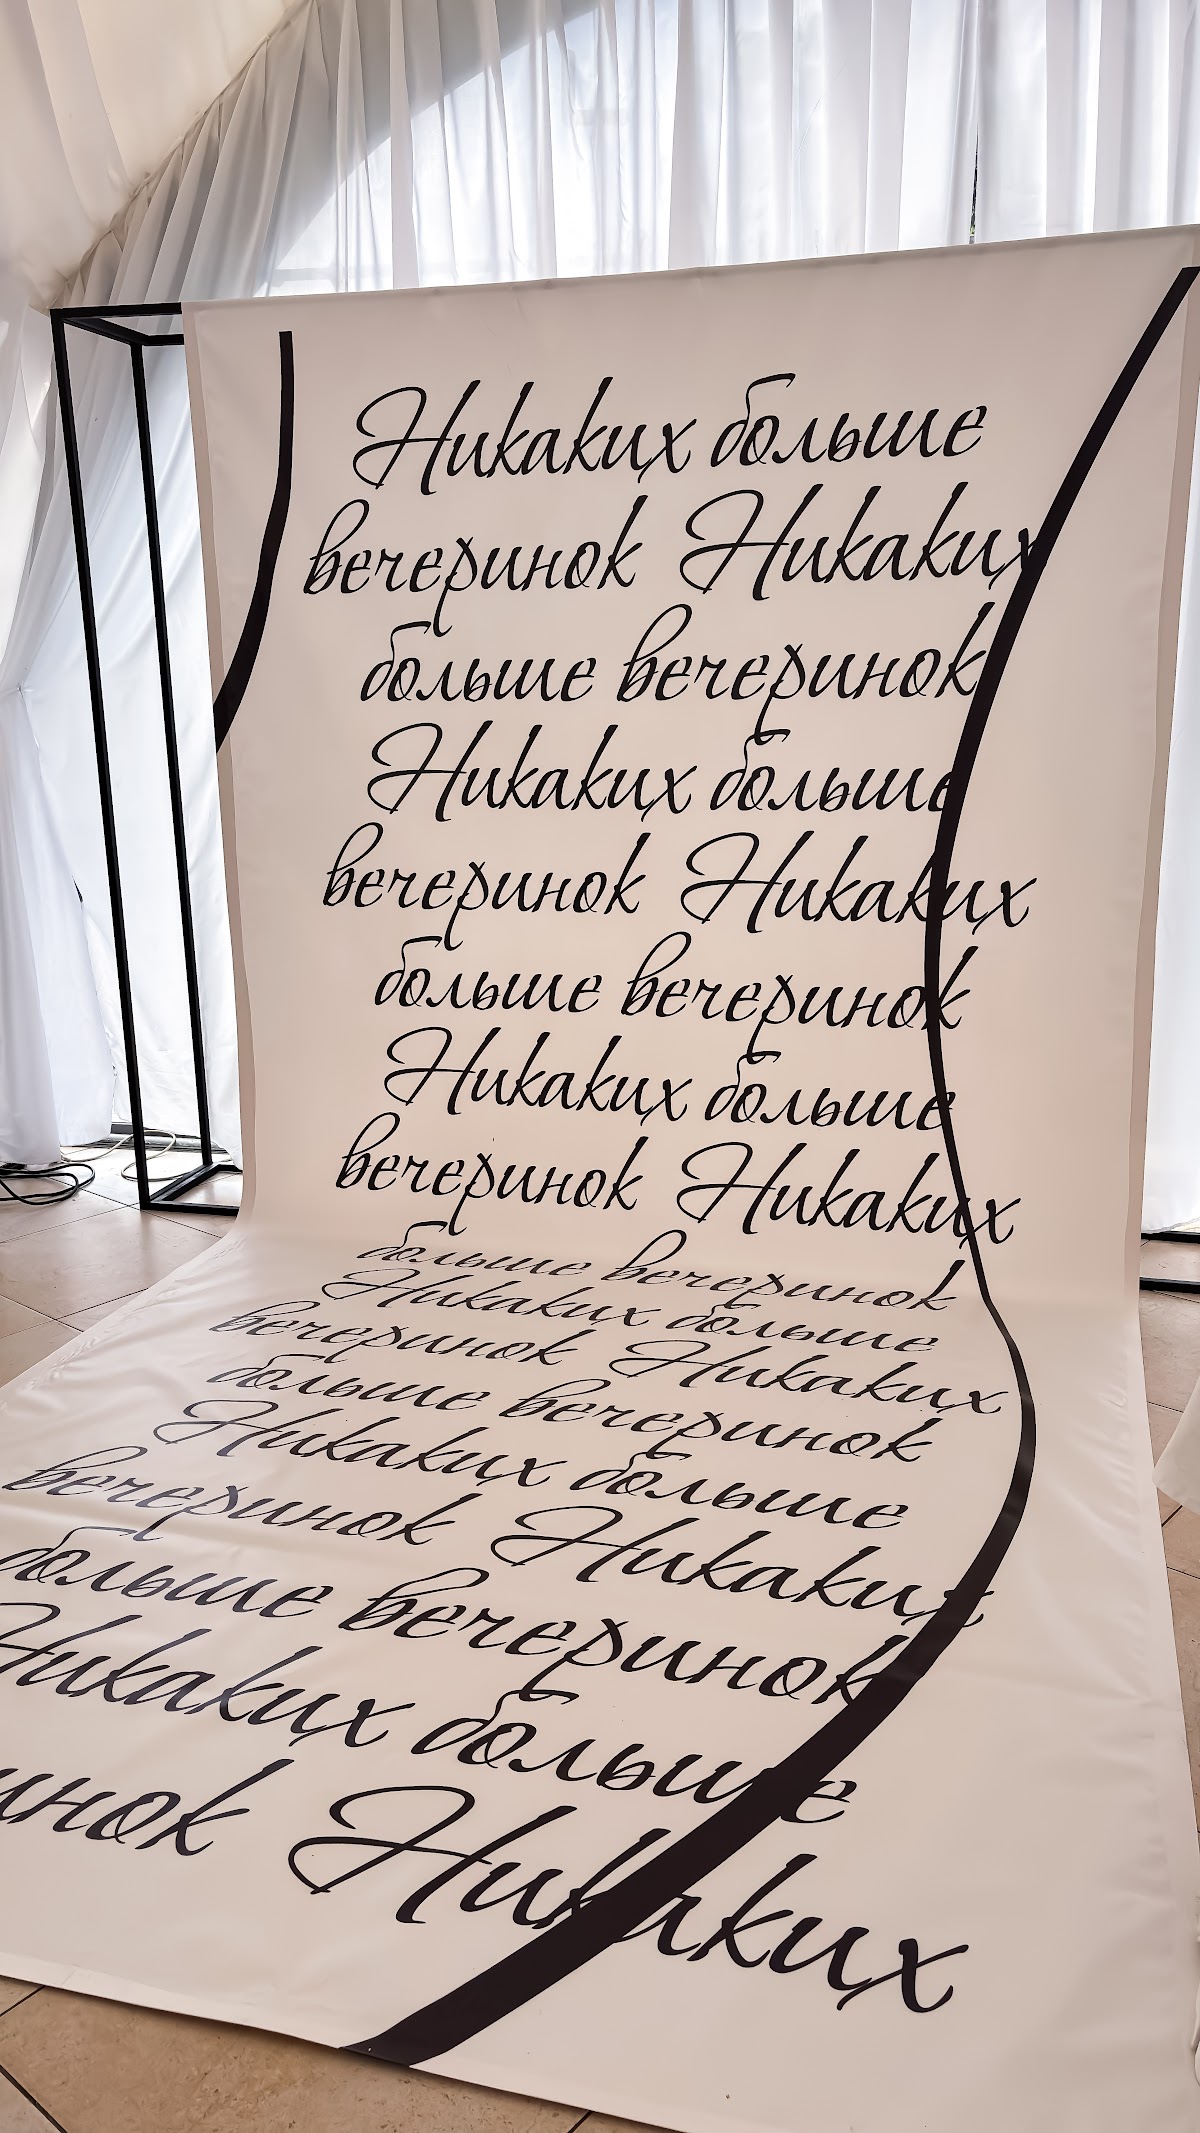 Никаких больше
вечеринок Никаких
больше вечеринок
Никаких больше
вечеринок Никаких
больше вечеринок
Никаких больше
вечеринок Никаких
больше вечеринок
Никаких больше
вечеринок Никаких
больше вечеринок
Никаких больше
вечеринок Никаких
больше вечеринок
Никаких больше
инок Никаких